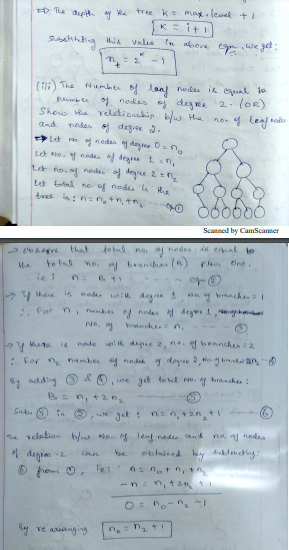 ⇒ The depth of the tree K = max. level + 1
K = i + 1
Substituting this value in above eqn, we get:
n_t = 2^K - 1
(iii) The Number of leaf nodes is equal to
number of nodes of degree 2. (OR)
Show the relationship b/w the no. of leaf nodes
and nodes of degree 2.
→ Let no. of nodes of degree 0 = n₀
Let no. of nodes of degree 1 = n₁
Let no. of nodes of degree 2 = n₂
Let total no. of nodes in the
tree is; n = n₀ + n₁ + n₂ - eqn ①
Scanned by CamScanner
→ Observe that total no. of nodes is equal to
the total no. of branches (B) plus one.
ie; n = B + 1 - - - - eqn ②
→ If there is node with degree 1, no. of branches = 1
∴ For n₁ number of nodes of degree 1,
No. of branches = n₁ - - - ③
→ If there is node with degree 2, no. of branches = 2
∴ For n₂ number of nodes of degree 2, no. of branches = 2n₂ - ④
By adding ③ & ④, we get total no. of branches:
B = n₁ + 2n₂ - - - ⑤
Subs. ⑤ in ②, we get: n = n₁ + 2n₂ + 1 - - - ⑥
The relation b/w No. of leaf nodes and no. of nodes
of degree -2 can be obtained by subtracting:
⑥ from ①, ie: n = n₀ + n₁ + n₂
-n = n₁ + 2n₂ + 1
0 = n₀ - n₂ - 1
By rearranging n₀ = n₂ + 1